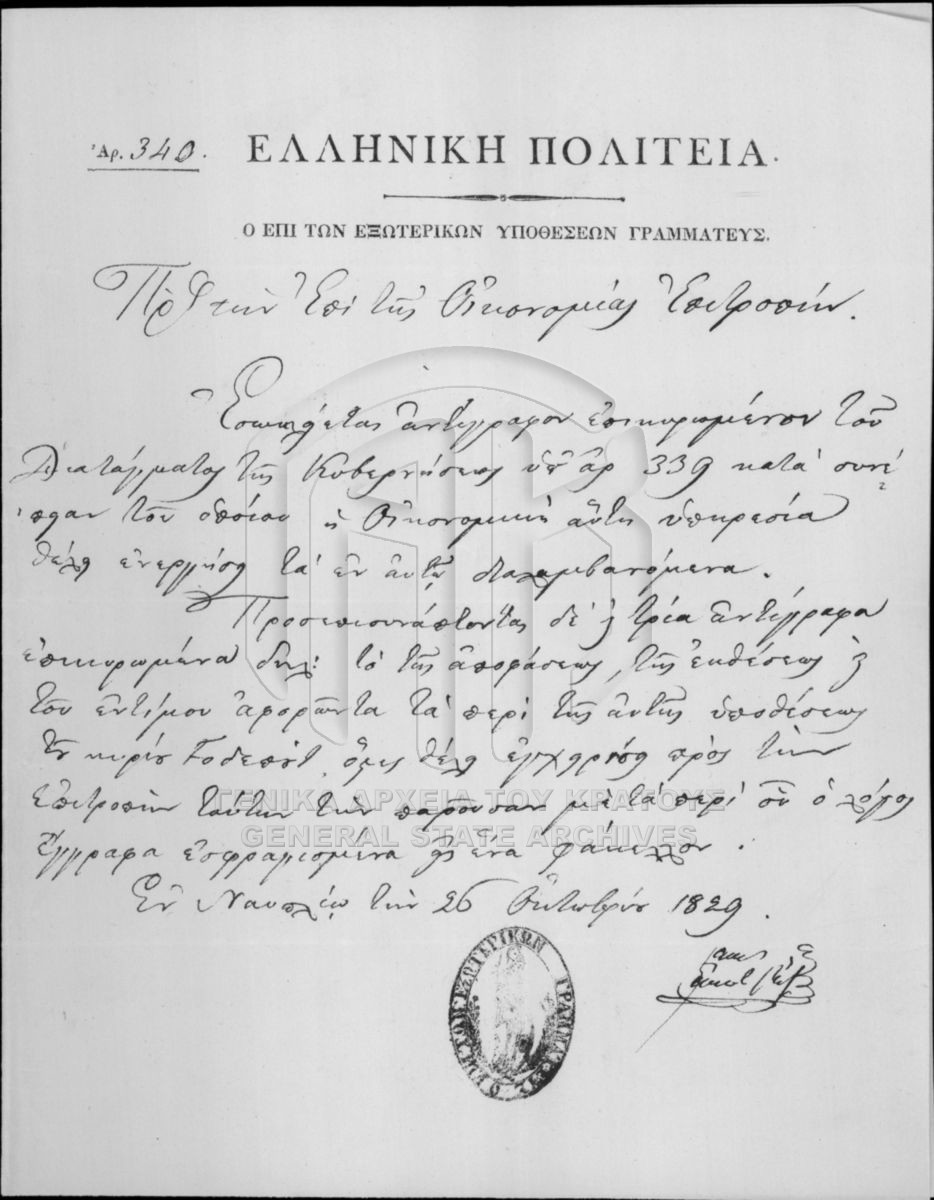 Ἀρ. 340.
ΕΛΛΗΝΙΚΗ ΠΟΛΙΤΕΙΑ.
Ο ΕΠΙ ΤΩΝ ΕΞΩΤΕΡΙΚΩΝ ΥΠΟΘΕΣΕΩΝ ΓΡΑΜΜΑΤΕΥΣ.
Πρὸς τὴν Ἐπὶ τῆς Οἰκονομίας Ἐπιτροπήν.
Ἐσωκλείεται ἀντίγραφον ἐπικυρωμένον τοῦ
Διατάγματος τῆς Κυβερνήσεως ὑπ' ἀρ 339 κατὰ συνέ
πειαν τοῦ ὁποίου ἡ Οἰκονομικὴ αὕτη ὑπηρεσία
θέλει ἐνεργήσει τὰ ἐν αὐτῷ διαλαμβανόμενα.
Προσεπισυνάπτονται δὲ καὶ τρία ἀντίγραφα
ἐπικυρωμένα δηλ: τὸ τῆς ἀποφάσεως, τῆς ἐκθέσεως καὶ
τοῦ ἐντίμου ἀφορῶντα τὰ περὶ τῆς αὐτῆς ὑποθέσεως
τοῦ κυρίου ὅστις θέλει ἐγχειρίσει πρὸς τὴν
Ἐπιτροπὴν ταύτην τὴν παροῦσαν μὲ τὰ περὶ οὗ ὁ λόγος
ἔγγραφα ἐσφραγισμένα εἰς ἕνα φάκελλον.
Ἐν Ναυπλίῳ τὴν 26 Ὀκτωβρίου 1829.
Ο ΕΠΙ ΤΩΝ ΕΞΩΤΕΡΙΚΩΝ ΓΡΑΜΜΑΤΕΥΣ
ΓΕΝΙΚΑ ΑΡΧΕΙΑ ΤΟΥ ΚΡΑΤΟΥΣ
GENERAL STATE ARCHIVES